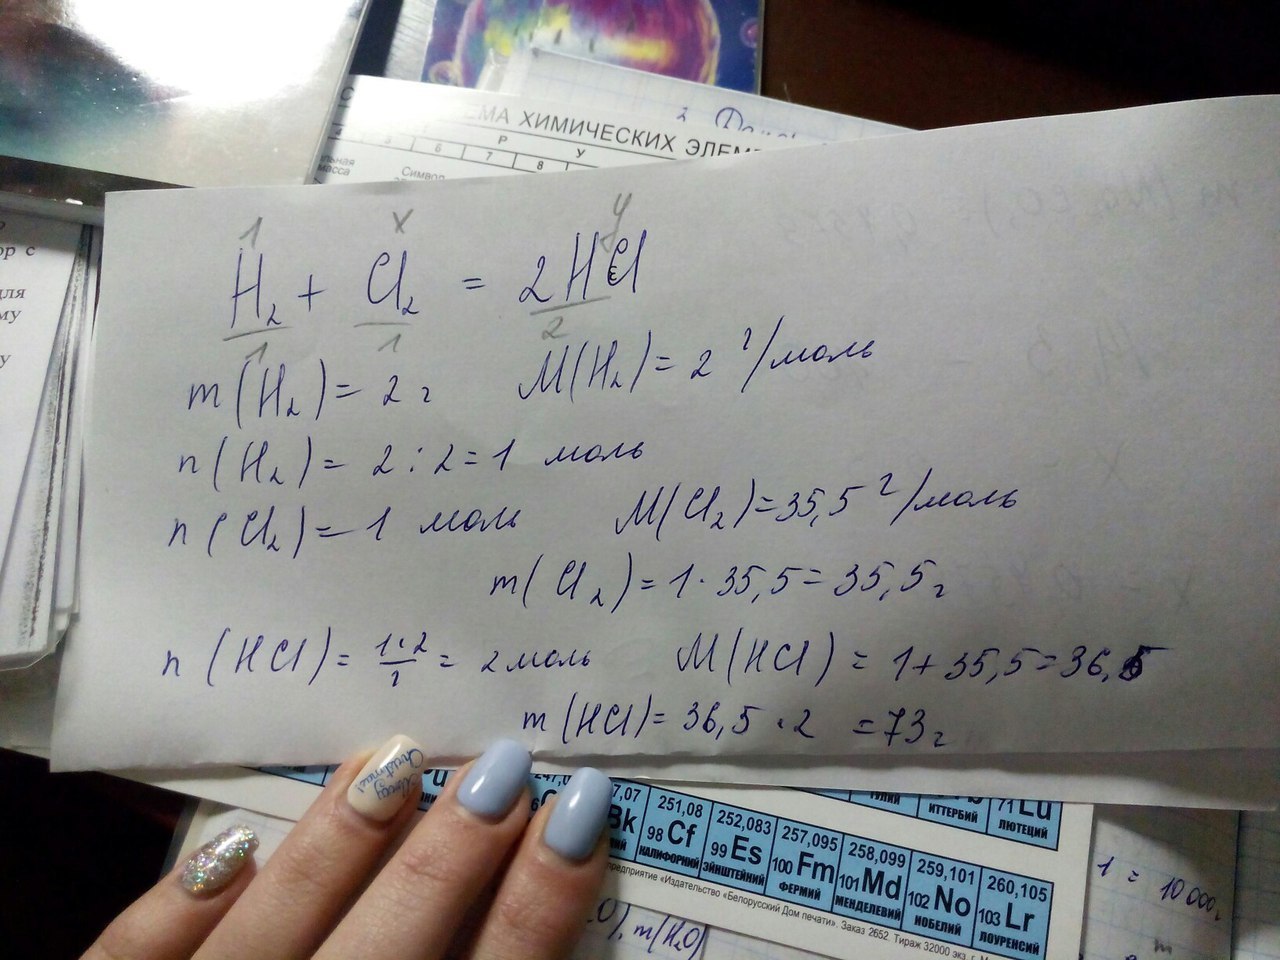 ЕМА ХИМИЧЕСКИХ ЭЛЕМ
5 6 7 8
Р У
Символ
масса
ор с
для
му
у
1 x y
H₂ + Cl₂ = 2HCl
1 1 2
m(H₂) = 2 г M(H₂) = 2 г/моль
n(H₂) = 2 : 2 = 1 моль
n(Cl₂) = 1 моль M(Cl₂) = 35,5 г/моль
m(Cl₂) = 1 · 35,5 = 35,5 г
n(HCl) = 1·2/1 = 2 моль M(HCl) = 1 + 35,5 = 36,5
m(HCl) = 36,5 · 2 = 73 г
Merry Christmas!
247,0 7,07 251,08 252,083 257,095 258,099 259,101 260,105
Bk 98 Cf 99 Es 100 Fm 101 Md 102 No 103 Lr
КАЛИФОРНИЙ ЭЙНШТЕЙНИЙ ФЕРМИЙ МЕНДЕЛЕВИЙ НОБЕЛИЙ ЛОУРЕНСИЙ
ТУЛИЙ ИТТЕРБИЙ 71 Lu ЛЮТЕЦИЙ
предприятие «Издательство «Белорусский Дом печати». Заказ 2652. Тираж 32000 экз.
O), m(H₂O)
1 = 10000
m